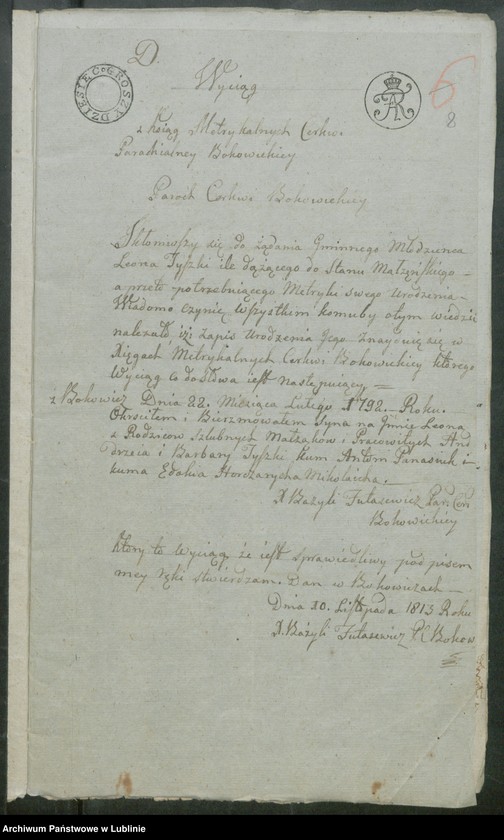 D.
DZIESIĘC GROSZY
6
8
Wyciąg
z Xsiąg Metrykalnych Cerkwi
Parachialney Bokowickiey
Paroch Cerkwi Bokowickiey
Skłoniwszy się do żądania Gminnego Młodzienca
Leona Tyszki ile dążącego do Stanu Małżęńskiego -
a przeto potrzebuiącego Metryki swego Urodzenia -
Wiadomo czynię wszystkim komuby otym wiedzić
należało, iż zapis Urodzenia Jego znayduię się w
Xięgach Metrykalnych Cerkwi Bokowickiey którego
Wyciąg co do słowa iest następuiący =
z Bokowicz Dnia 22. Miesiąca Lutego 1792. Roku.
Okrsciłem i Bierzmowałem Syna na Jmie Leona
z Rodziców Szlubnych Małżąków i Pracowitych And
drzeia i Barbary Tyszki Kum Antoni Panasiuk i -
kuma Edokia Horczarycha Mikołaicha. -
X Bazyli Tułasewicz Par: Cer:
Bokowickiey
Ktory to Wyciąg że iest sprawiedliwy podpisem
mey ręki stwierdzam. Dan w Bokowiczach -
Dnia 20. Listopada 1813 Roku
X. Bazyli Tułasewicz PC Bokow
Archiwum Państwowe w Lublinie